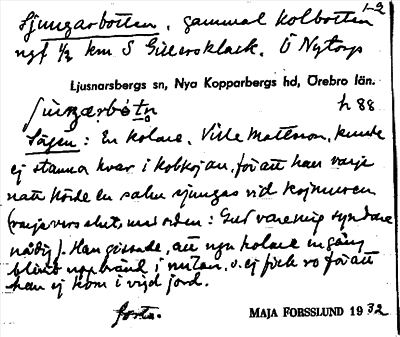 1-2
Sjungarbotten, gammal kolbotten
ngf ½ km S Gillersklack. Ö Nytorp
Ljusnarsbergs sn, Nya Kopparbergs hd, Örebro län.
h 88
Sägen: En kolare, Ville Mattsson, kunde
ej stanna kvar i kolkojan, för att han varje
natt hörde en salm sjungas vid kojmuren
(varje vers slut. med orden: Gud vare mig syndare
nådig). Han gissade, att ngn kolare en gång
blivit uppbränd i milan, o. ej fick ro för att
han ej kom i vigd jord.
forts.
MAJA FORSSLUND 1932